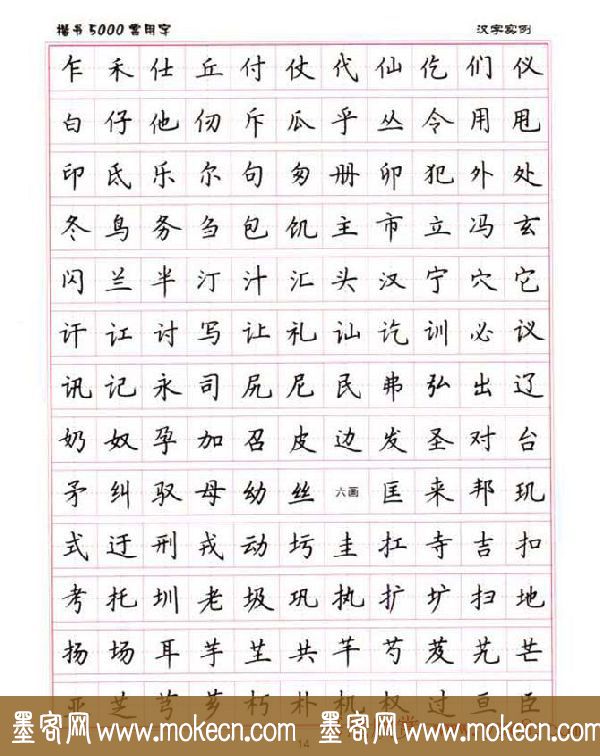 楷书5000常用字 汉字实例
乍 禾 仕 丘 付 仗 代 仙 仡 们 仪
白 仔 他 仞 斥 瓜 乎 丛 令 用 甩
印 氐 乐 尔 句 匆 册 卯 犯 外 处
冬 鸟 务 刍 包 饥 主 市 立 冯 玄
闪 兰 半 汀 汁 汇 头 汉 宁 穴 它
讦 讧 讨 写 让 礼 讪 讫 训 必 议
讯 记 永 司 尻 尼 民 弗 弘 出 辽
奶 奴 孕 加 召 皮 边 发 圣 对 台
矛 纠 驭 母 幼 丝 六画 匡 耒 邦 玑
式 迂 刑 戎 动 圬 圭 扛 寺 吉 扣
考 托 圳 老 圾 巩 执 扩 圹 扫 地
扬 场 耳 芋 芏 共 芊 芍 芨 芄 芒
亚 芝 芎 芗 朽 朴 机 权 过 亘 臣
14
墨客网 www.mokecn.com 墨客网 www.mokecn.com